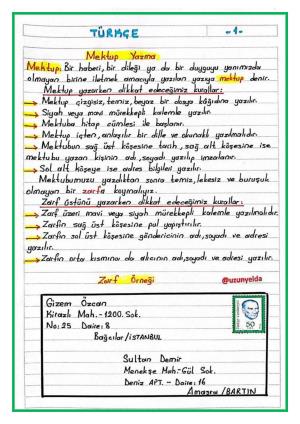 TÜRKÇE -1-
Mektup Yazma
Mektup: Bir haberi, bir dileği ya da bir duyguyu yanımızda
olmayan birine iletmek amacıyla yazılan yazıya mektup denir.
Mektup yazarken dikkat edeceğimiz kurallar:
Mektup çizgisiz, temiz, beyaz bir dosya kâğıdına yazılır.
Siyah veya mavi mürekkepli kalemle yazılır.
Mektuba hitap cümlesi ile başlanır.
Mektup içten, anlaşılır bir dille ve okunaklı yazılmalıdır.
Mektubun sağ üst köşesine tarih, sağ alt köşesine ise
mektubu yazan kişinin adı, soyadı yazılıp imzalanır.
Sol alt köşeye ise adres bilgileri yazılır.
Mektubumuzu yazdıktan sonra temiz, lekesiz ve buruşuk
olmayan bir zarfa koymalıyız.
Zarf üstünü yazarken dikkat edeceğimiz kurallar:
Zarf üzeri mavi veya siyah mürekkepli kalemle yazılmalıdır.
Zarfın sağ üst köşesine pul yapıştırılır.
Zarfın sol üst köşesine göndericinin adı, soyadı ve adresi
yazılır.
Zarfın orta kısmına da alıcının adı, soyadı ve adresi yazılır.
Zarf Örneği @uzunyelda
Gizem Özcan
Kirazlı Mah.-1200. Sok.
No: 25 Daire: 8
Bağcılar/İSTANBUL
Sultan Demir
Menekşe Mah. Gül Sok.
Deniz APT. - Daire: 16
Amasra/BARTIN